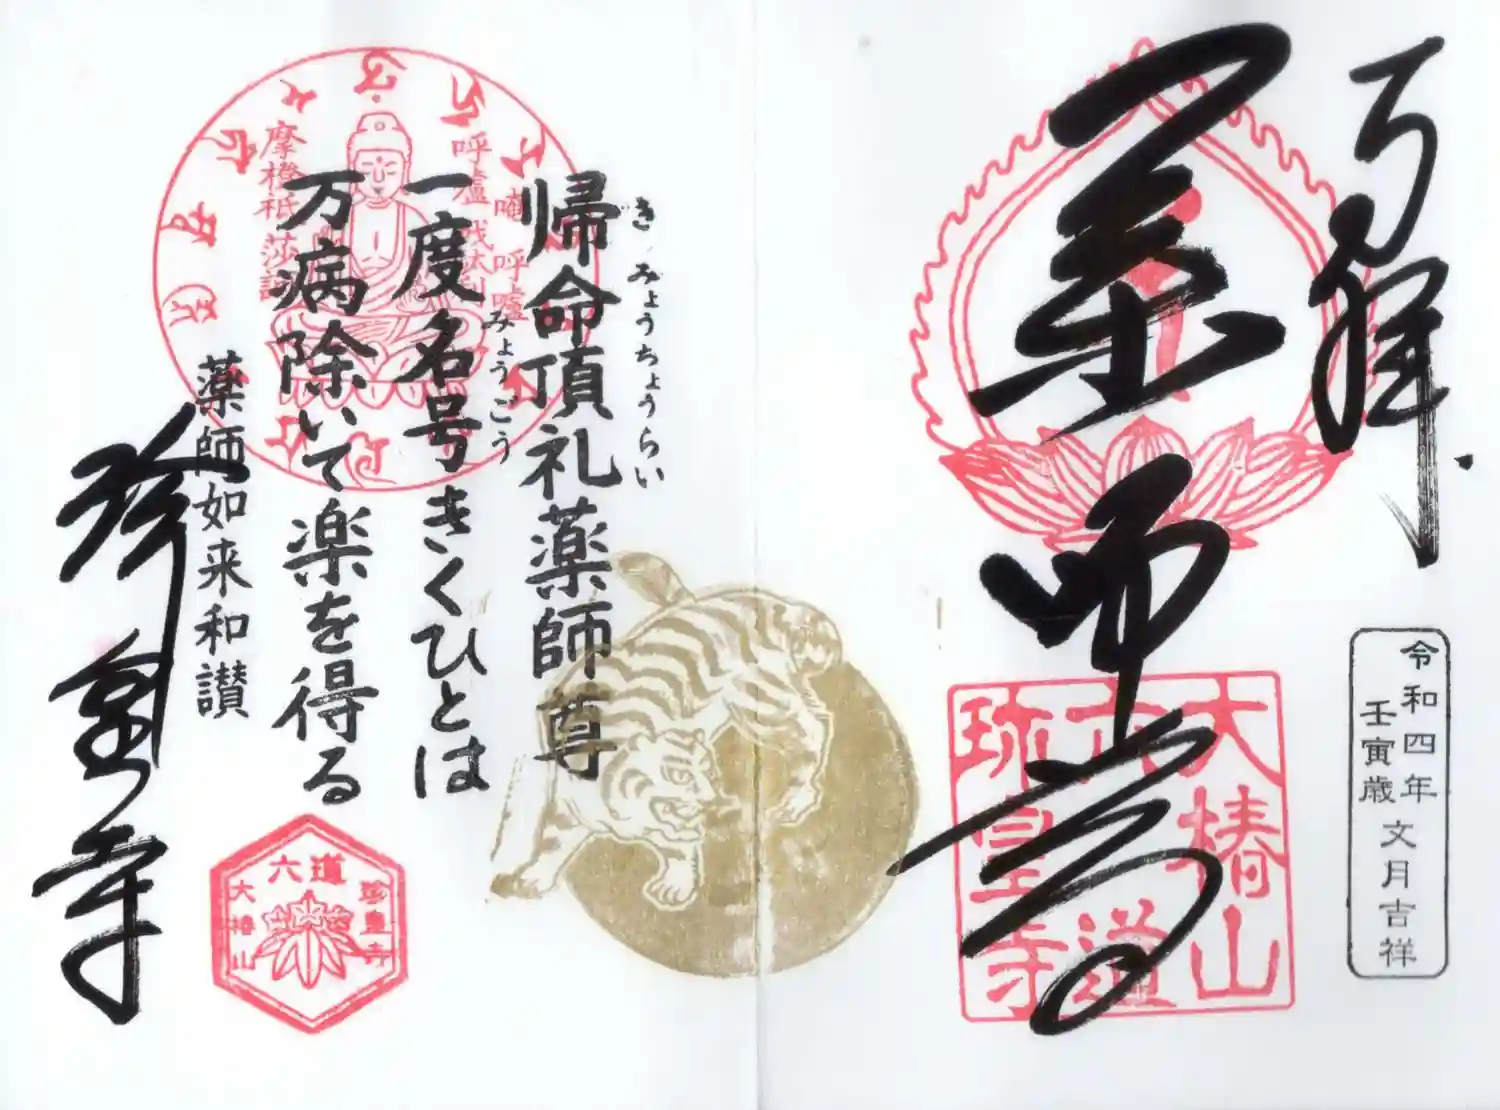 奉拝
薬師尊
大椿山
六道
珍皇寺
令和四年
壬寅歳 文月吉祥
帰命頂礼薬師尊
き みょうちょうらい
一度名号きくひとは
みょうごう
万病除いて楽を得る
薬師如来和讃
珍皇寺
六道
珍皇寺
大椿山